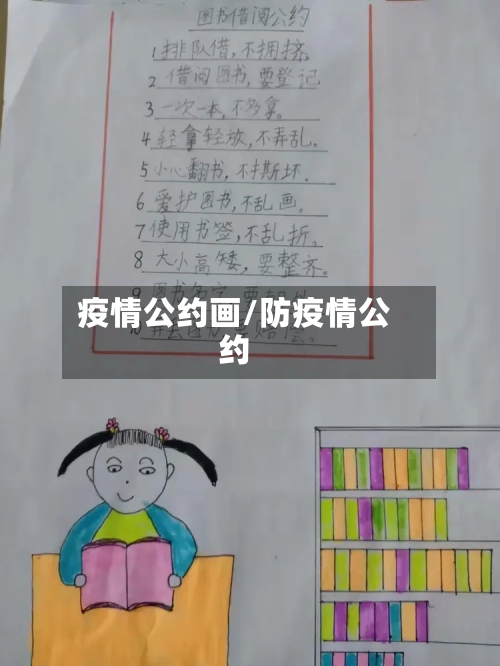 图书借阅公约
1 排队借，不拥挤。
2 借阅图书，要登记
3 一次一本，不多拿。
4 轻拿轻放，不弄乱。
5 小心翻书，不撕坏.
6 爱护图书，不乱画。
7 使用书签，不乱折。
8 大小高矮，要整齐。
疫情公约画/防疫情公
约